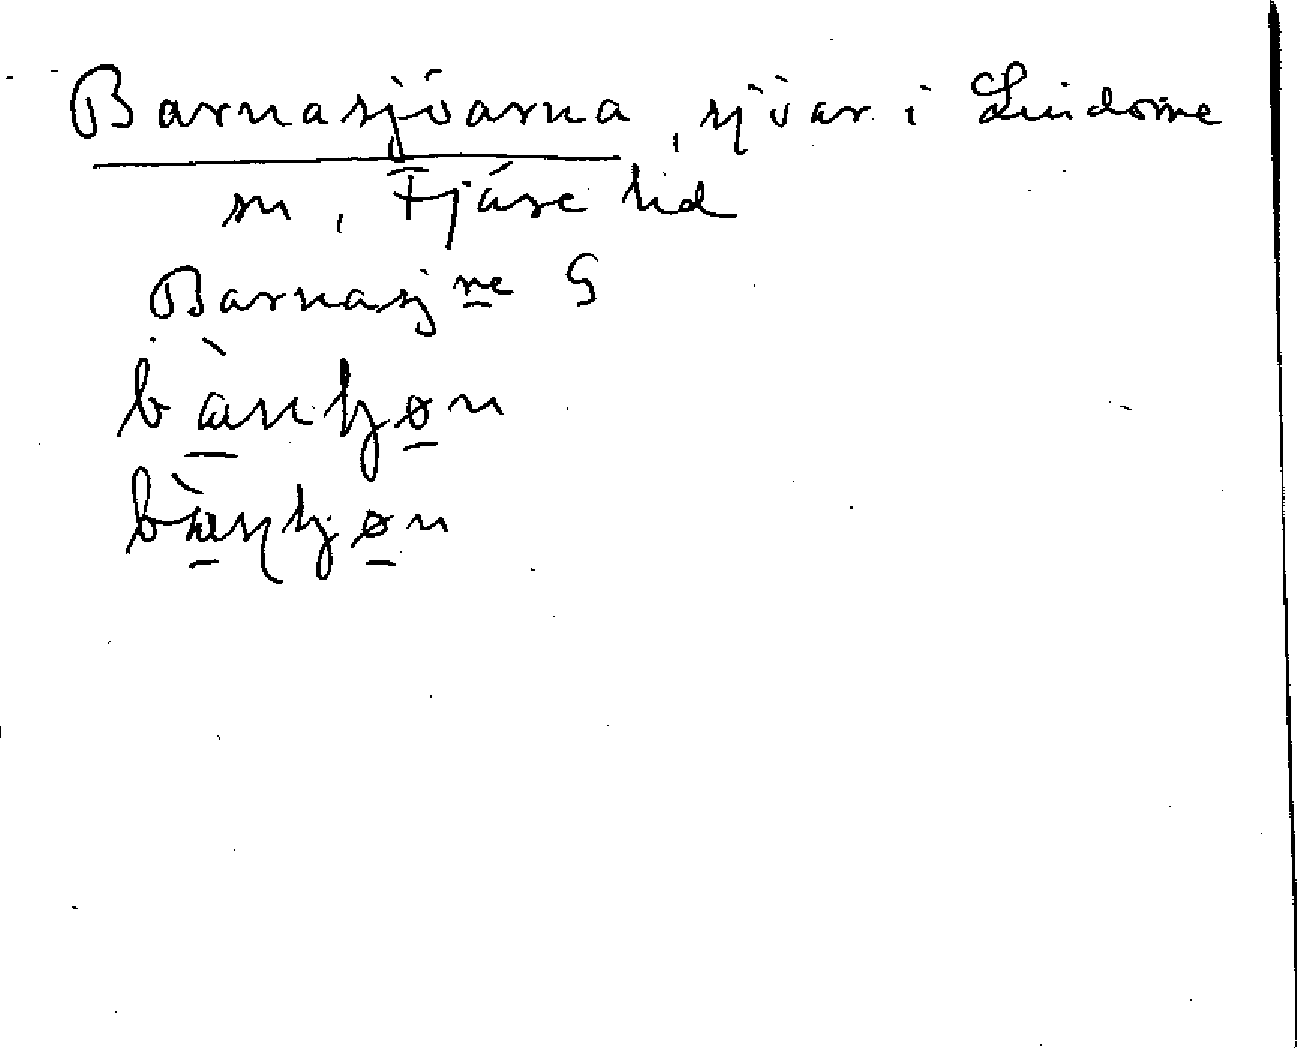 Barnasjöarna, sjöar i Lindome
sn, Fjäre hd
Barnasjne G
bànhjøn
bàɳhjøn